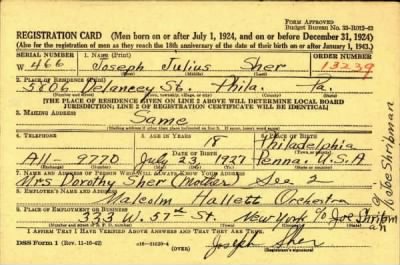 FORM APPROVED
Budget Bureau No. 33-R012-42
REGISTRATION CARD (Men born on or after July 1, 1924, and on or before December 31, 1924)
(Also for the registration of men as they reach the 18th anniversary of the date of their birth on or after January 1, 1943.)
SERIAL NUMBER 1. NAME (Print) ORDER NUMBER
W 466 Joseph Julius Sher 13239
(First) (Middle) (Last)
2. PLACE OF RESIDENCE (Print)
5806 Delancey St. Phila. Pa.
(Number and street) (Town, township, village, or city) (County) (State)
[THE PLACE OF RESIDENCE GIVEN ON LINE 2 ABOVE WILL DETERMINE LOCAL BOARD
JURISDICTION; LINE 2 OF REGISTRATION CERTIFICATE WILL BE IDENTICAL]
3. MAILING ADDRESS
Same
4. TELEPHONE 5. AGE IN YEARS 6. PLACE OF BIRTH
18 Philadelphia
DATE OF BIRTH
All- 9720 July 23 1927 Penna. U.S.A
7. NAME AND ADDRESS OF PERSON WHO WILL ALWAYS KNOW YOUR ADDRESS
Mrs Dorothy Sher (Mother) See 2
8. EMPLOYER'S NAME AND ADDRESS
Malcolm Hallett Orchestra
9. PLACE OF EMPLOYMENT OR BUSINESS
333 W. 57th St. New York % Joe Shribman
(Number and street or R. F. D. number) (Town) (County) (State)
I AFFIRM THAT I HAVE VERIFIED ABOVE ANSWERS AND THAT THEY ARE TRUE.
DSS Form 1 (Rev. 11-16-42) (OVER) Joseph Sher
% Joe Shribman